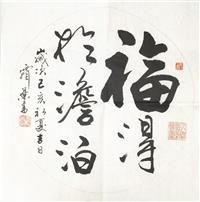 福得
於澹泊
歲次己亥初夏吉日